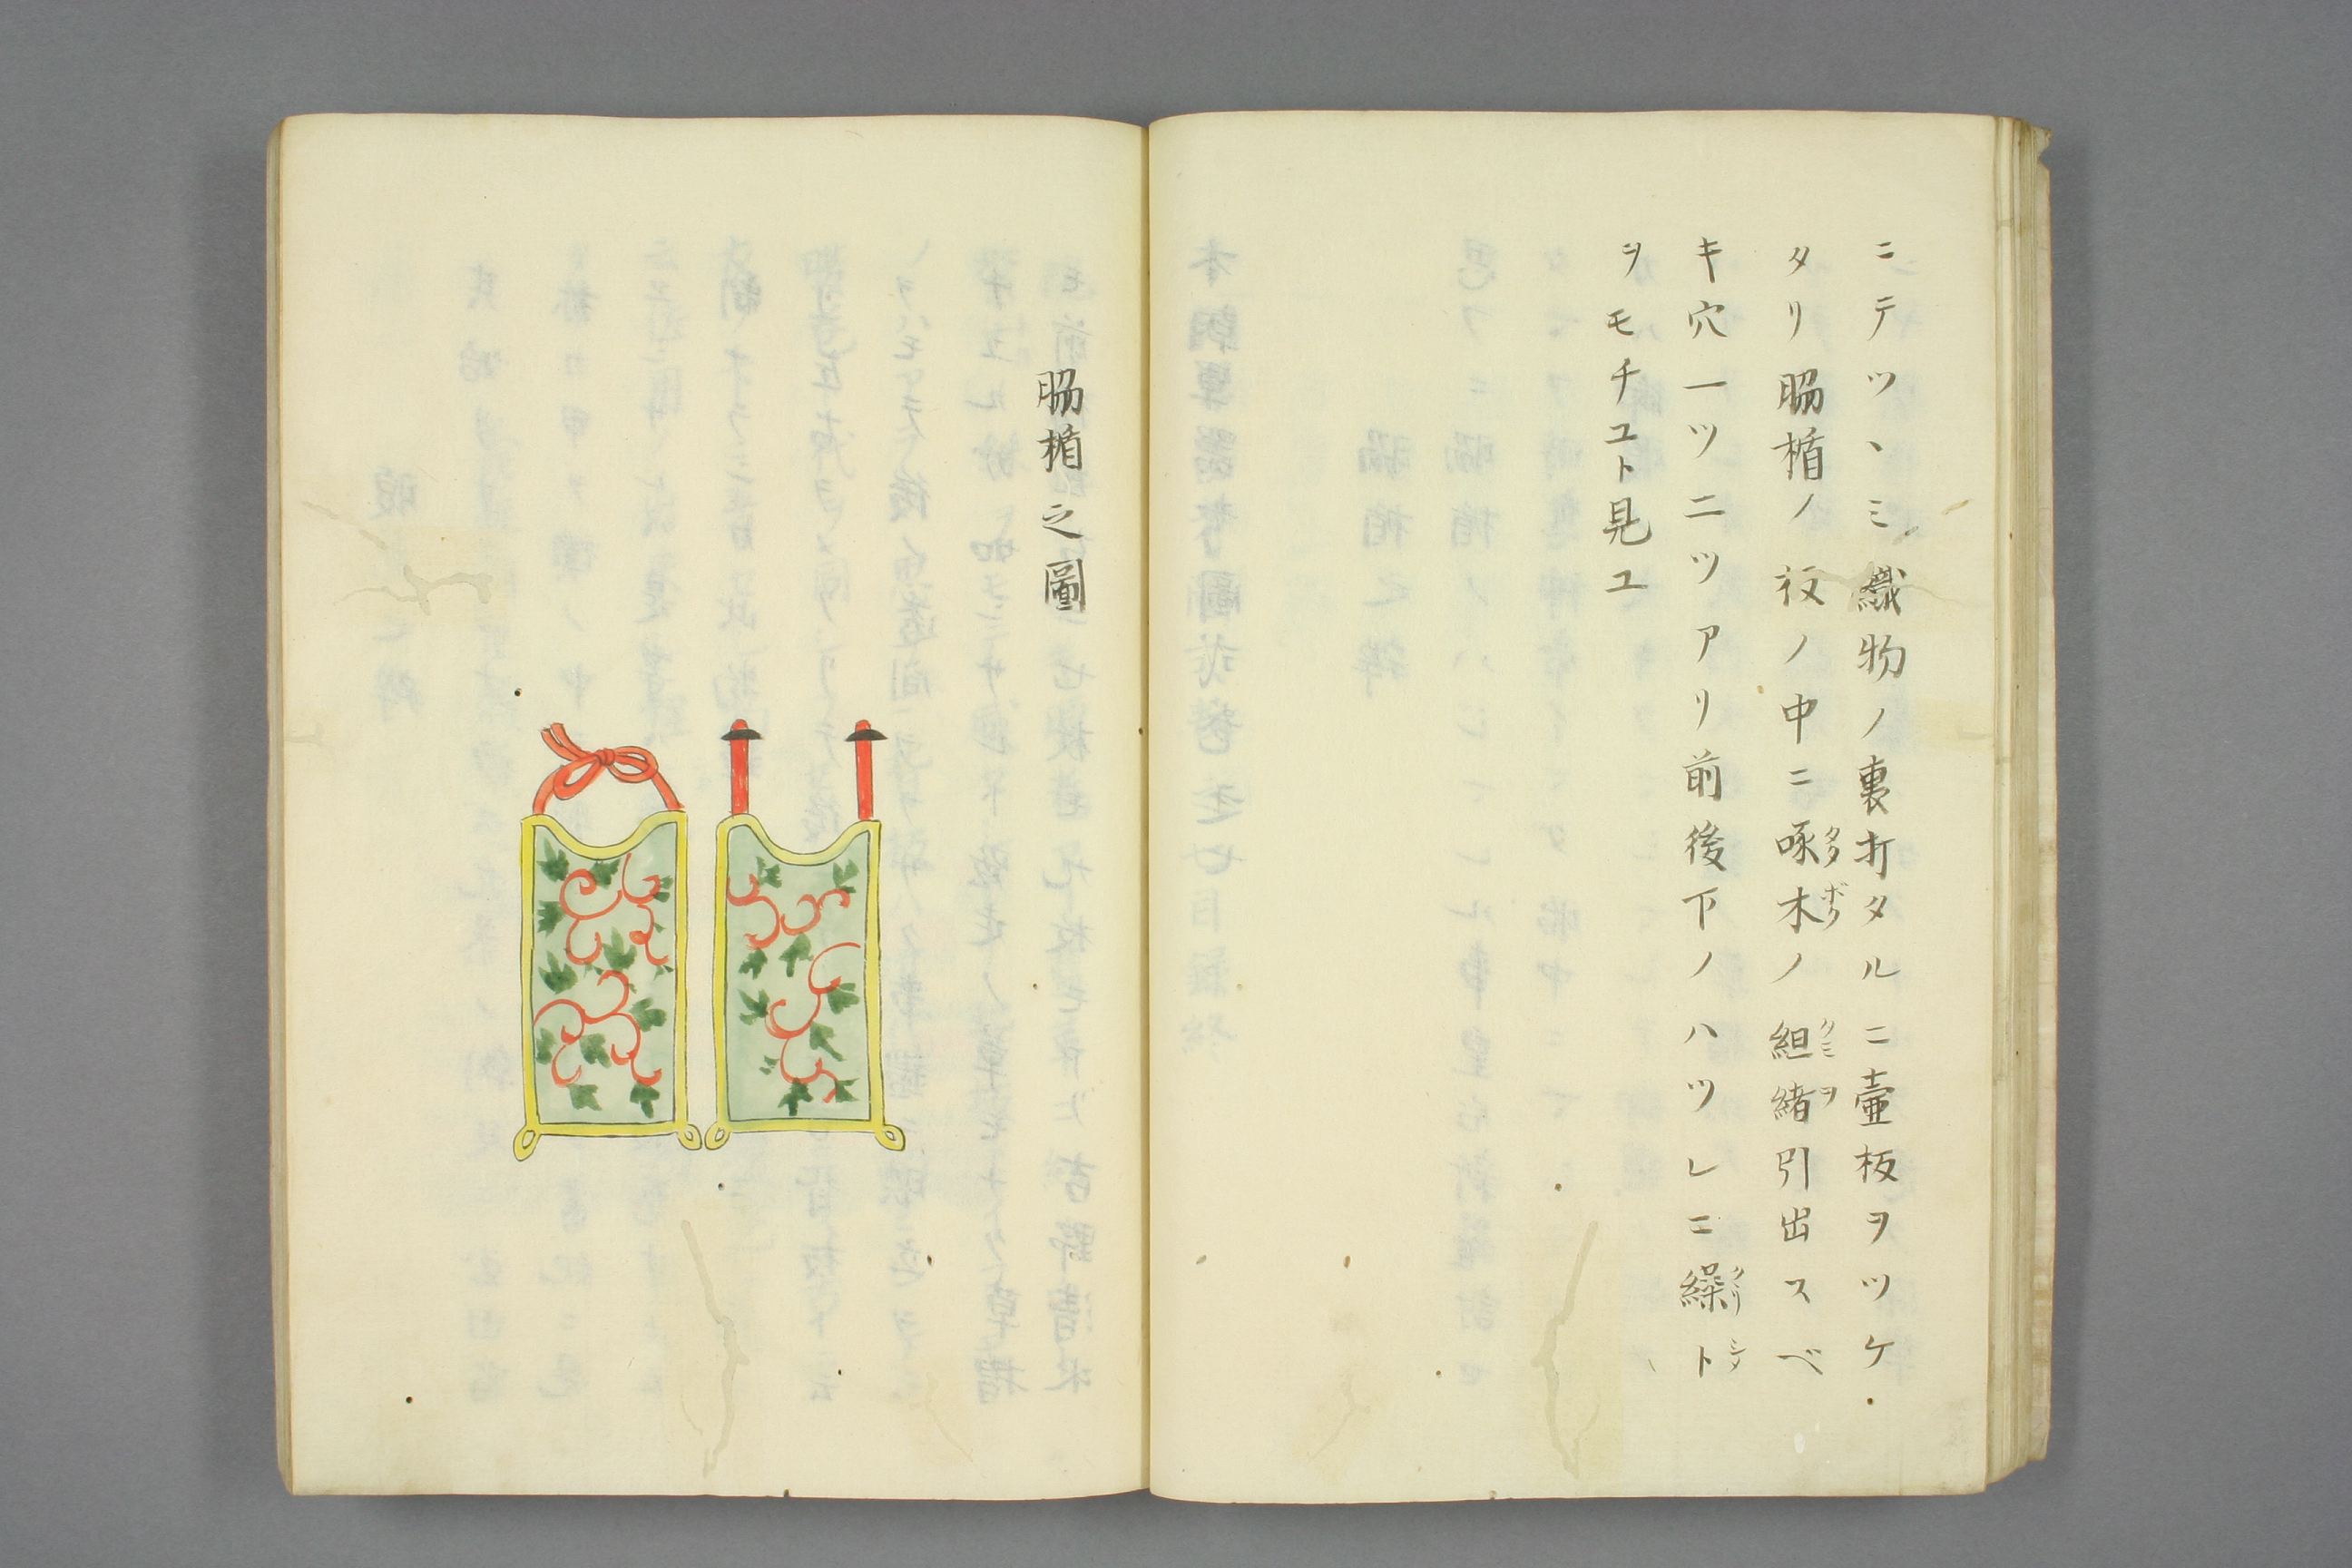 ニテツヽミ織物ノ裏打タルニ壷板ヲツケ
タリ脇楯ノ衩ノ中ニ啄木ノ組緒引出スベ
タクボク
クミヲ
キ穴一ツ二ツアリ前後下ノハツレニ繰ト
クリシメ
ヲモチユト見ユ
脇楯之圖